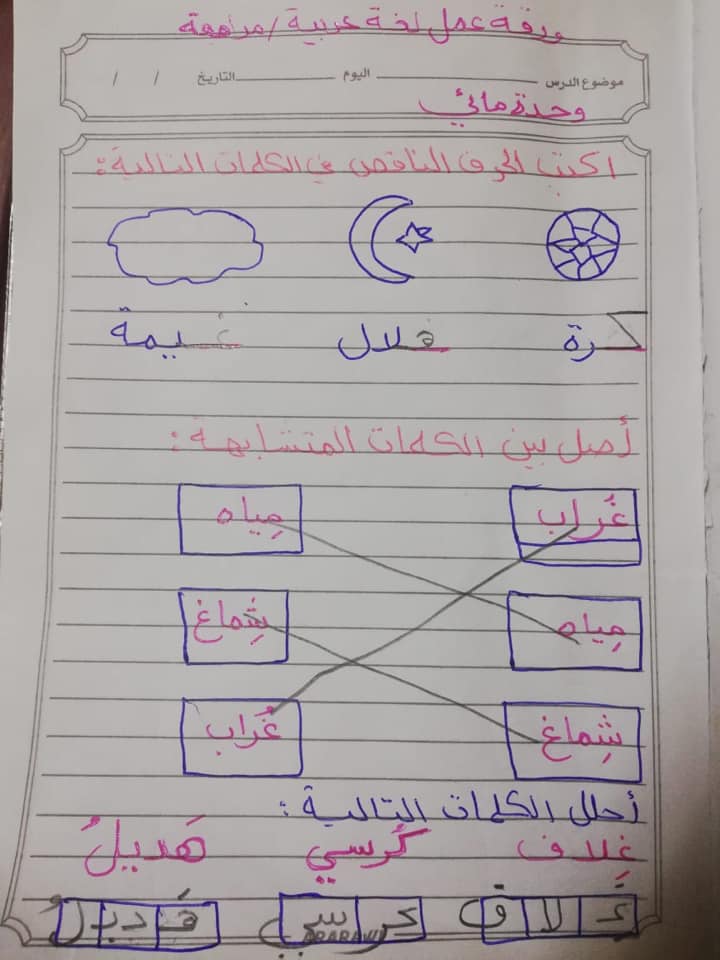 ورقة عمل لغة عربية / مراجعة
موضوع الدرس اليوم التاريخ / /
وحدة مائي
اكتب الحرف الناقص في الكلمات التالية:
كرة هلال غيمة
أصل بين الكلمات المتشابهة:
غُراب مِياه
مِياه شِماغ
شِماغ غُراب
أحلل الكلمات التالية:
غِلاف كُرسي هَديلُ
غِ لا ف كر سي هَـ ديـ لُ